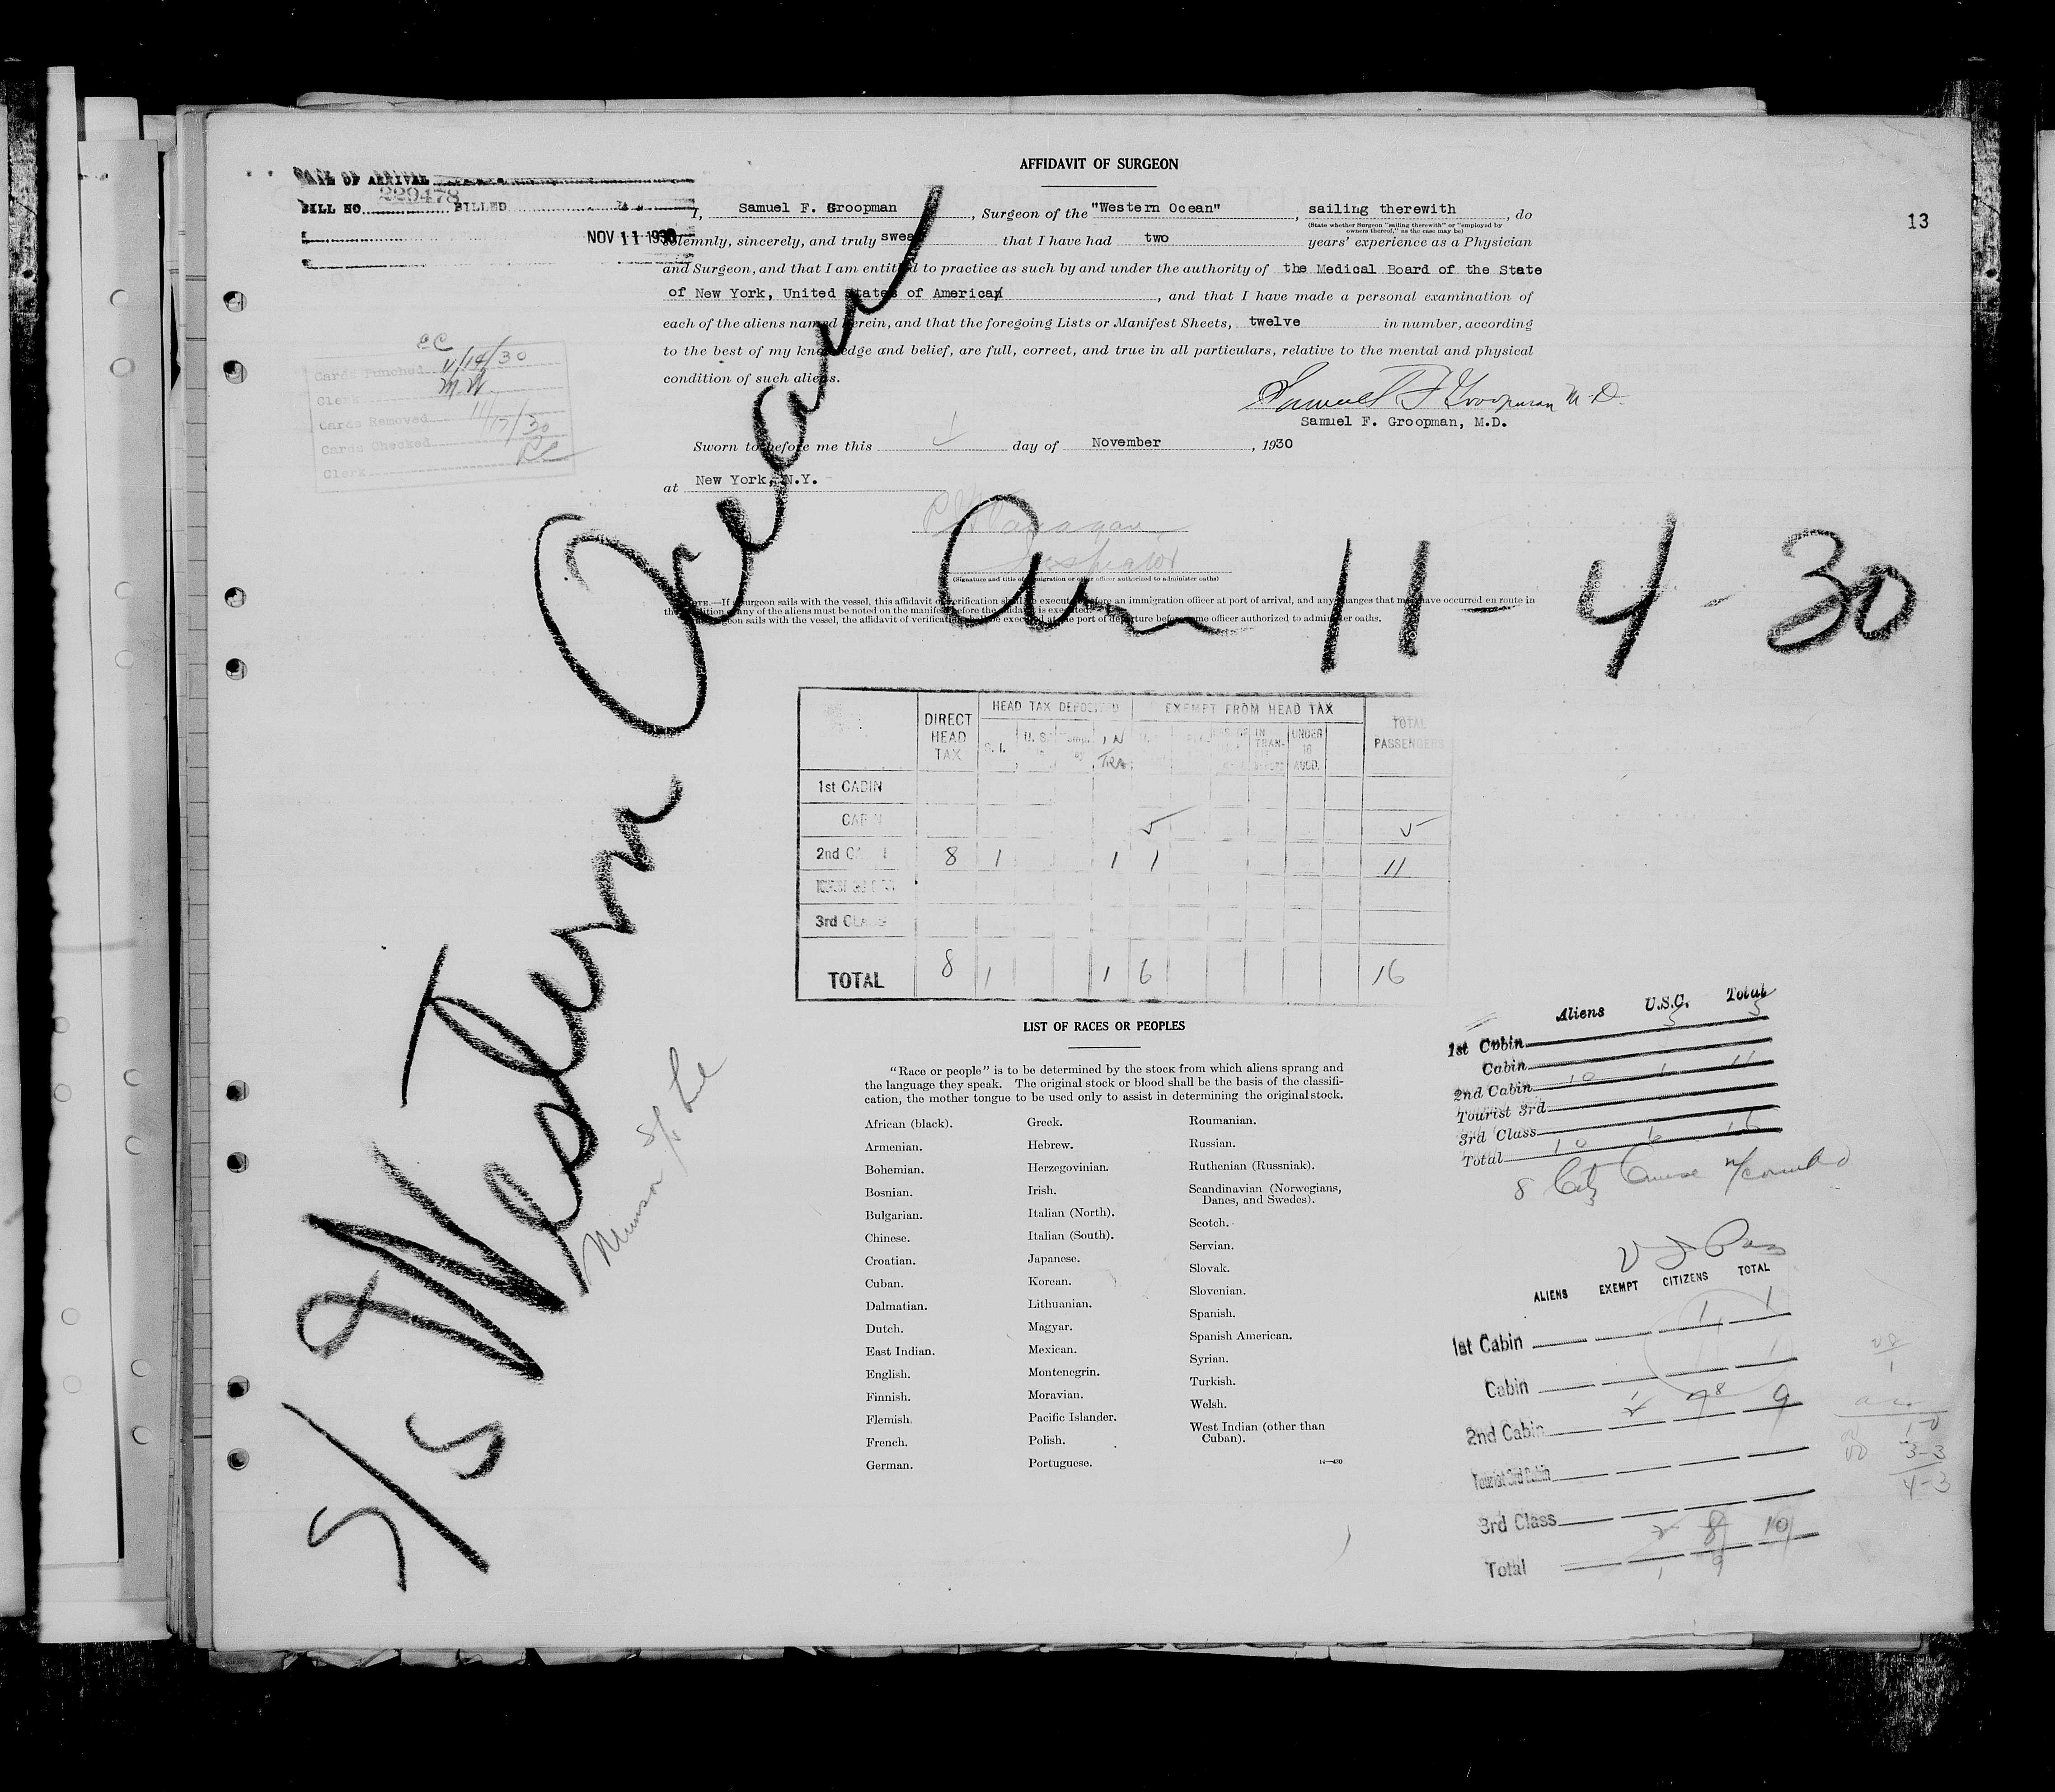 AFFIDAVIT OF SURGEON
13
DATE OF ARRIVAL
BILL NO. 229478 BILLED
NOV 11 1930
I, Samuel F. Groopman, Surgeon of the "Western Ocean", sailing therewith, do
(State whether Surgeon "sailing therewith" or "employed by
owners thereof," as the case may be)
solemnly, sincerely, and truly swear that I have had two years' experience as a Physician
and Surgeon, and that I am entitled to practice as such by and under the authority of the Medical Board of the State
of New York, United States of American, and that I have made a personal examination of
each of the aliens named herein, and that the foregoing Lists or Manifest Sheets, twelve in number, according
to the best of my knowledge and belief, are full, correct, and true in all particulars, relative to the mental and physical
condition of such aliens.
Samuel F Groopman M.D.
Samuel F. Groopman, M.D.
Sworn to before me this 1 day of November, 1930
at New York, N.Y.
Inspector
(Signature and title of immigration or other officer authorized to administer oaths)
NOTE.—If a surgeon sails with the vessel, this affidavit of verification shall be executed before an immigration officer at port of arrival, and any changes that may have occurred en route in
the condition of any of the aliens must be noted on the manifest before the affidavit is executed.
surgeon sails with the vessel, the affidavit of verification shall be executed at the port of departure before some officer authorized to administer oaths.
CC
Cards Punched 11/14/30
Clerk M.W.
Cards Removed 11/17/30
Cards Checked
Clerk
S/S Western Ocean
Munson S/S Line
Arr 11-4-30
DIRECT HEAD TAX HEAD TAX DEPOSITED EXEMPT FROM HEAD TAX TOTAL PASSENGERS
S. I. U. S. IN TRA. IN TRAN- UNDER 16
1st CABIN
CABIN 5 5
2nd CABIN 8 1 1 1 11
3rd CLASS
TOTAL 8 1 1 6 16
LIST OF RACES OR PEOPLES
"Race or people" is to be determined by the stock from which aliens sprang and
the language they speak. The original stock or blood shall be the basis of the classifi-
cation, the mother tongue to be used only to assist in determining the original stock.
African (black).
Armenian.
Bohemian.
Bosnian.
Bulgarian.
Chinese.
Croatian.
Cuban.
Dalmatian.
Dutch.
East Indian.
English.
Finnish.
Flemish.
French.
German.
Greek.
Hebrew.
Herzegovinian.
Irish.
Italian (North).
Italian (South).
Japanese.
Korean.
Lithuanian.
Magyar.
Mexican.
Montenegrin.
Moravian.
Pacific Islander.
Polish.
Portuguese.
Roumanian.
Russian.
Ruthenian (Russniak).
Scandinavian (Norwegians,
Danes, and Swedes).
Scotch.
Servian.
Slovak.
Slovenian.
Spanish.
Spanish American.
Syrian.
Turkish.
Welsh.
West Indian (other than
Cuban).
14—430
Aliens U.S.C. Total
1st Cabin 5 5
Cabin
2nd Cabin 10 1 11
Tourist 3rd
3rd Class
Total 10 6 16
8 Citz Cruise
ALIENS EXEMPT CITIZENS TOTAL
1st Cabin 1 1
Cabin 1
2nd Cabin 8 9
Tourist 3rd Cabin
3rd Class
Total 9 10
3-3
4-3